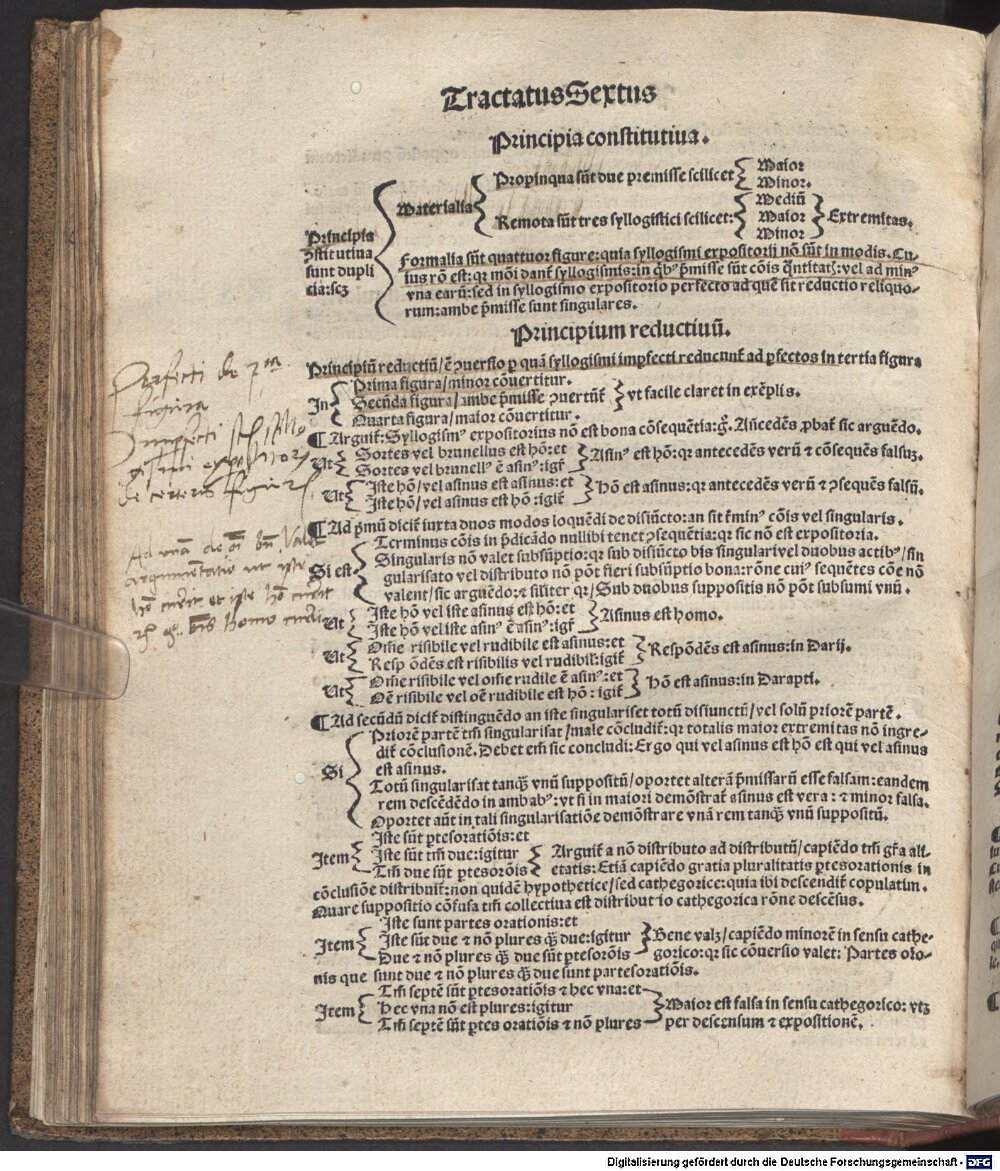 Tractatus Sextus
Principia constitutiua.
Principia
ꝯstitutiua
sunt dupli
cia:scꝫ
Materialia
Propinqua sūt due premisse scilicet
Maior
Minor.
Remota sūt tres syllogistici scilicet:
Mediū
Maior
Minor
Extremitas.
Formalia sūt quattuor figure:quia syllogismi expositorii nō sūt in modis.Cu-
ius rō est:qꝛ mōi danť syllogismis:in qͥbꝰ p̄misse sūt cōis q̄ntitatꝭ:vel ad minꝰ
vna earū:sed in syllogismo expositorio perfecto ad quē fit reductio reliquo-
rum:ambe p̄misse sunt singulares.
Principium reductiuū.
Principiū reductiuū/ē ꝯuersio ꝑ quā syllogismi imꝑfecti reducunť ad ꝑfectos in tertia figura
In
Prima figura/minor cōuertitur.
Secūda figura/ambe p̄misse ꝯuertūť
Quarta figura/maior cōuertitur.
vt facile claret in exēplis.
¶ Arguiť:Syllogismꝰ expositorius nō est bona cōsequētia:gͦ. Añcedēs ꝓbať sic arguēdo.
Ut
Sortes vel brunellus est hō:et
Sortes vel brunellꝰ ē asinꝰ:igiť
Asinꝰ est hō:qꝛ antecedēs verū ⁊ cōsequēs falsuꝫ.
Ut
Iste hō/vel asinus est asinus:et
Iste hō/vel asinus est hō:igiť
Hō est asinus:qꝛ antecedēs verū ⁊ ꝯsequēs falsū.
¶ Ad p̄mū diciť iuxta duos modos loquēdi de disiūcto:an sit ťminꝰ cōis vel singularis.
Si est
Terminus cōis in p̄dicādo nullibi tenet ꝯsequētia:qꝛ sic nō est expositoria.
Singularis nō valet subsūptio:qꝛ sub disiūcto bis singulari vel duobus actibꝰ/sin
gularisato vel distributo nō pōt fieri subsūptio bona:rōne cuiꝰ sequētes cōe nō
valent/sic arguēdo:⁊ siliter qꝛ/Sub duobus suppositis nō pōt subsumi vnū.
Ut
Iste hō vel iste asinus est hō:et
Iste hō vel iste asinꝰ ē asinꝰ:igiť
Asinus est homo.
Ut
Om̄e risibile vel rudibile est asinus:et
Respōdēs est risibilis vel rudibił:igiť
Respōdēs est asinus:in Darij.
Ut
Om̄e risibile vel om̄e rudile ē asinꝰ:et
Oē risibile vel oē rudibile est hō:igiť
Hō est asinus:in Darapti.
¶ Ad secūdū diciť distinguēdo an iste singulariset totū disiunctū/vel solū priorē partē.
Si
Priorē partē tm̄ singularisat/male cōcludiť:qꝛ totalis maior extremitas nō ingre-
diť cōclusionē.Debet em̄ sic concludi:Ergo qui vel asinus est hō est qui vel asinus
est asinus.
Totū singularisat tanqꝫ vnū suppositū/oportet alterā p̄missarū esse falsam:eandem
rem descēdēdo in ambabꝰ:vt si in maiori demōstrať asinus est vera:⁊ minor falsa.
Oportet aūt in tali singularisatiōe demōstrare vnā rem tanqꝫ vnū suppositū.
Item
Iste sūt ꝑtesoratiōis:et
Iste sūt tm̄ due:igitur
Tm̄ due sūt ꝑtesorōis
Arguiť a nō distributo ad distributū/capiēdo tm̄ gr̄a ali-
etatis:Etiā capiēdo gratia pluralitatis ꝑtesorationis in
cōclusiōe distribuiť:non quidē hypothetice/sed cathegorice:quia ibi descendiť copulatim.
Quare suppositio cōfusa tm̄ collectiua est distributio cathegorica rōne descēsus.
Item
Iste sunt partes orationis:et
Iste sūt due ⁊ nō plures qꝫ due:igitur
Due ⁊ nō plures qꝫ due sūt ꝑtesorōis
Bene valꝫ/capiēdo minorē in sensu cathe-
gorico:qꝛ sic cōuersio valet: Partes oro-
nis que sunt due ⁊ nō plures qꝫ due sunt partesoratiōis.
Item
Tm̄ septē sūt ꝑtesoratiōis ⁊ hec vna:et
Hec vna nō est plures:igitur
Tm̄ septē sūt ꝑtes oratiōis ⁊ nō plures
Maior est falsa in sensu cathegorico: vtꝫ
per descensum ⁊ expositionē.
Perfecti de 3ᵃ
figura
Imperfecti
de ceteris figuris
Ad argumentatio ut iste
hō currit et iste hō currit
homo currit
Digitalisierung gefördert durch die Deutsche Forschungsgemeinschaft - DFG